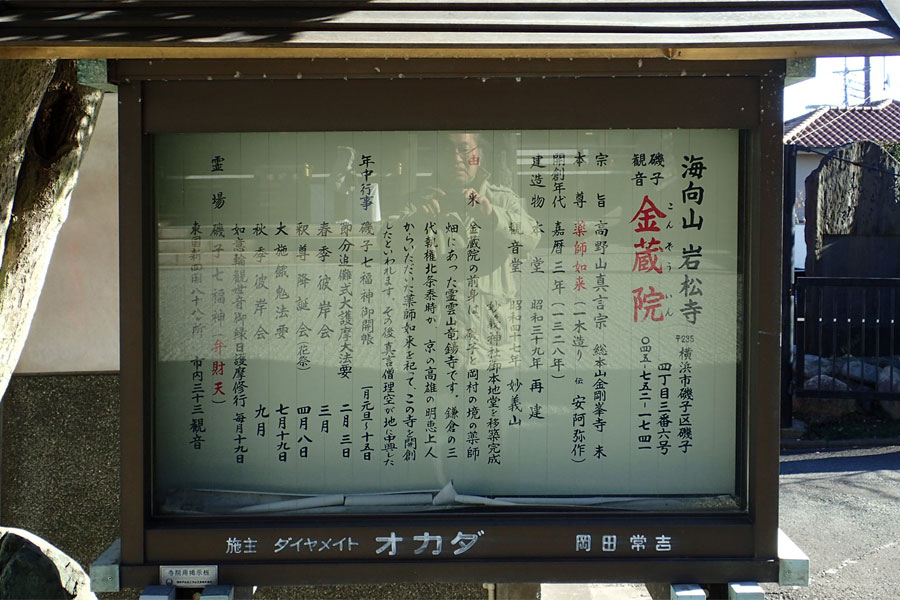 海向山 岩松寺
〒235 横浜市磯子区磯子
四丁目三番六号
〇四五-七五二-一七四一
磯子
観音
金蔵院
こんぞういん
宗旨 高野山真言宗 総本山金剛峯寺 末
本尊 薬師如来(一木造り 伝 安阿弥作)
開創年代 嘉暦三年(一三二八年)
建造物 本堂 昭和三十九年 再建
観音堂 昭和四十 年 妙義山
妙義神社御本地堂を移築完成
由来 金蔵院の前身は、磯子と岡村の境の薬師
畑にあった霊雲山竜錫寺です。鎌倉の三
代執権北条泰時が、京の高雄の明恵上人
からいただいた薬師如来を祀って、この寺を開創
したといわれます。その後真言僧理空が地に中興した
年中行事 磯子七福神御開帳 一月元旦~十五日
節分追儺式大護摩大法要 二月三日
春季彼岸会 三月
釈尊降誕会(花祭) 四月八日
大施餓鬼法要 七月十九日
秋季彼岸会 九月
如意輪観世音御縁日護摩修行 毎月十九日
霊場 磯子七福神(弁財天)
東国新四国八十八ヶ所 市内三十三観音
施主 ダイヤメイト オカダ 岡田常吉
寺院用掲示板